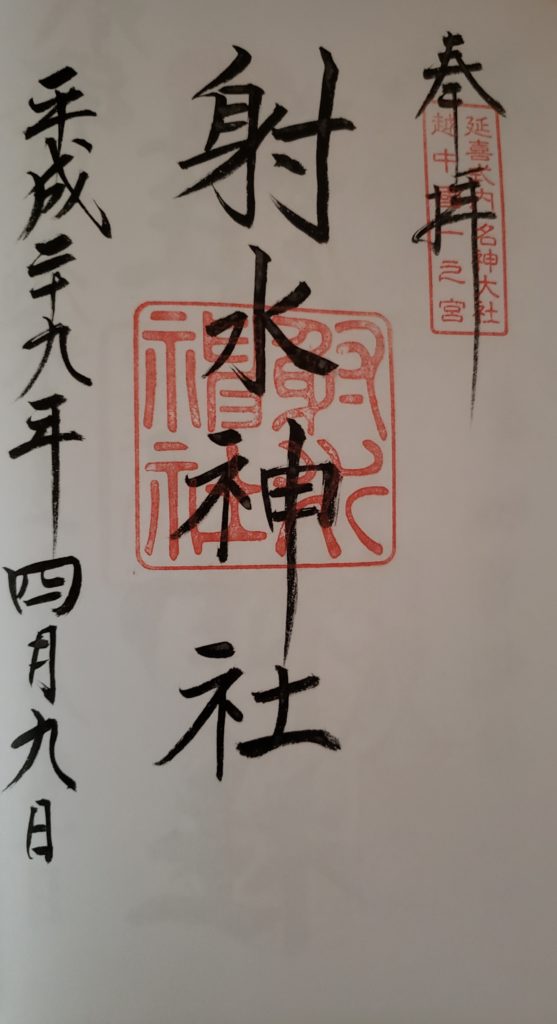 奉拝
延喜式内名神大社
越中国一之宮
射水神社
射水神社
平成二十九年四月九日